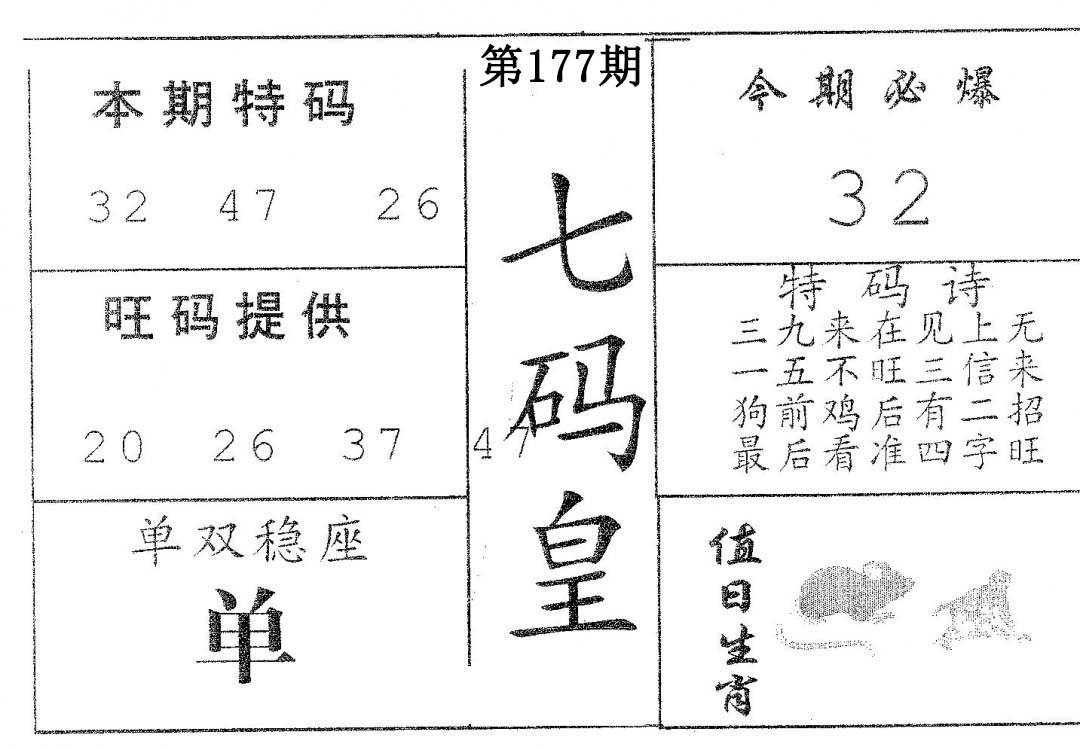 第177期
七码皇
本期特码
32 47 26
旺码提供
20 26 37 47
单双稳座
单
今期必爆
32
特码诗
三九来在见上无
一五不旺三信来
狗前鸡后有二招
最后看准四字旺
值日生肖